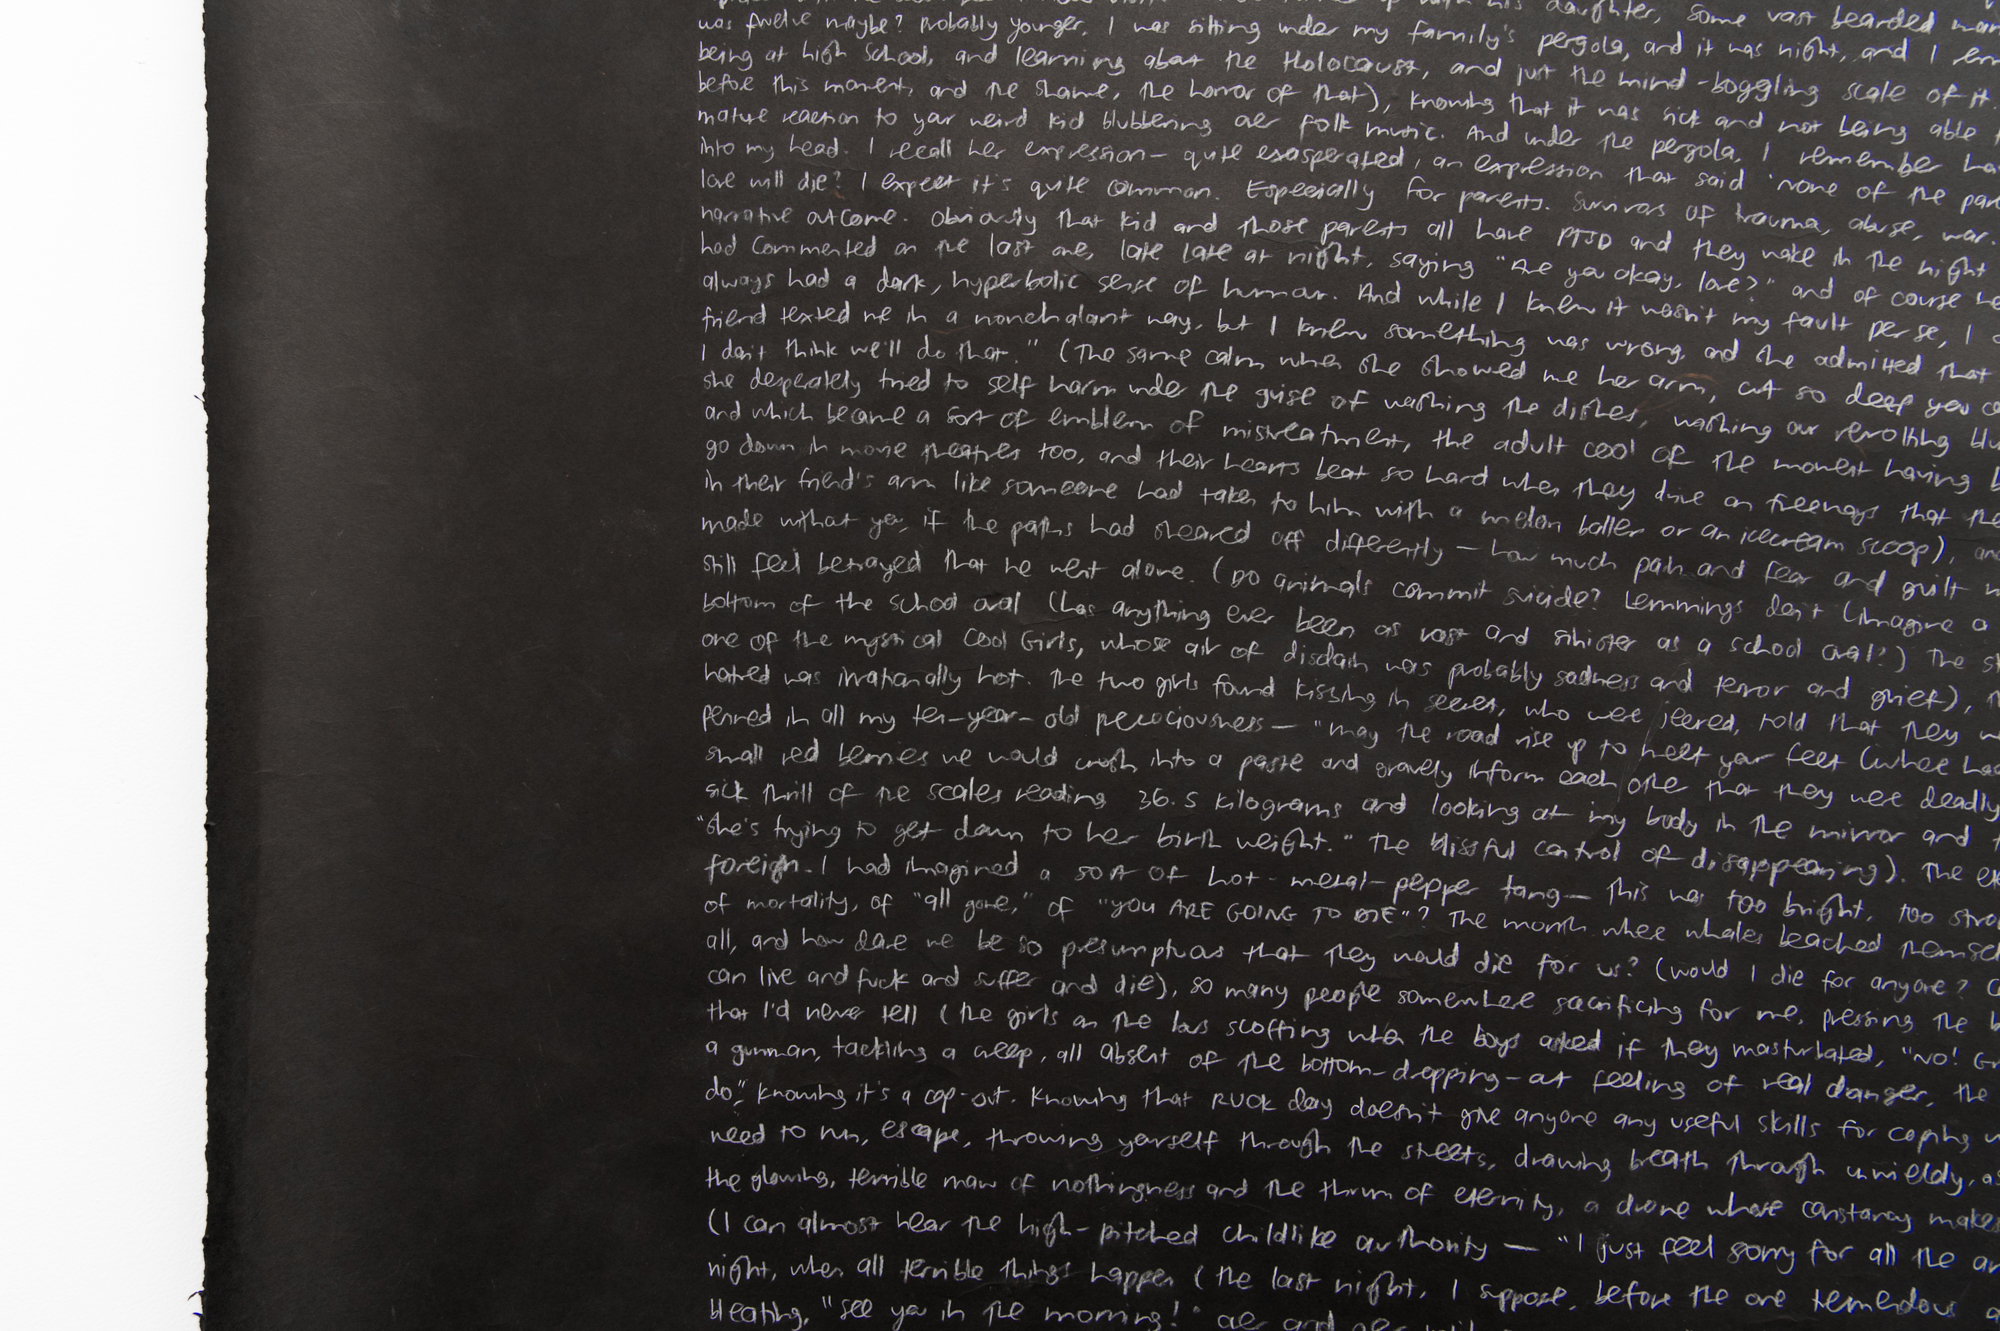 his daughter, some vast bearded man
was twelve maybe? Probably younger. I was sitting under my family's pergola, and it was night, and I
being at high school, and learning about the Holocaust, and just the mind-boggling scale of it.
before this moment, and the shame, the horror of that), knowing that it was sick and not being able
mature reaction to your weird kid blubbering over folk music. And under the pergola, I remember
into my head. I recall her expression – quite exasperated, an expression that said 'none of the
love will die? I expect it's quite common. Especially for parents. Survivors of trauma, abuse, war.
narrative outcome. Obviously that kid and those parents all have PTSD and they wake in the night
had commented on the last one, late late at night, saying "Are you okay, love?" and of course
always had a dark, hyperbolic sense of humour. And while I knew it wasn't my fault per se, I
friend texted me in a nonchalant way, but I knew something was wrong, and she admitted that
I don't think we'll do that." (The same calm when she showed me her arm, cut so deep you
she desperately tried to self harm under the guise of washing the dishes, washing our revolting
and which became a sort of emblem of mistreatment, the adult cool of the moment having
go down in movie theatres too, and their hearts beat so hard when they drive on freeways that
in their friend's arm like someone had taken to him with a melon baller or an icecream scoop),
made without you, if the paths had sheared off differently – how much pain and fear and guilt
still feel betrayed that he went alone. (Do animals commit suicide? Lemmings don't (imagine a
bottom of the school oval (has anything ever been as vast and sinister as a school oval?) The
one of the mystical Cool Girls, whose air of disdain was probably sadness and terror and grief),
hatred was irrationally hot. The two girls found kissing in, who were jeered, told that they
penned in all my ten-year-old precociousness – "may the road rise up to meet your feet (where
small red berries we would crush into a paste and gravely inform each other that they were deadly
sick thrill of the scales reading 36.5 kilograms and looking at my body in the mirror and
"She's trying to get down to her birth weight." The blissful control of disappearing). The
foreign. I had imagined a sort of hot-metal-pepper tang – this was too bright, too
of mortality, of "all gone," of "YOU ARE GOING TO DIE"? The month where whales beached
all, and how dare we be so presumptuous that they would die for us? (would I die for anyone?
can live and fuck and suffer and die), so many people somewhere sacrificing for me, pressing the
that I'd never tell (the girls on the bus scoffing when the boys asked if they masturbated, "No!
a gunman, tackling a creep, all absent of the bottom-dropping-out feeling of real danger, the
do," knowing it's a cop-out. Knowing that RUOK day doesn't give anyone any useful skills for coping
need to run, escape, throwing yourself through the streets, drawing breath through unwieldy,
the glowing, terrible maw of nothingness and the thrum of eternity, a drone whose constancy makes
(I can almost hear the high-pitched childlike authority – "I just feel sorry for all the
night, when all terrible things happen (the last night, I suppose, before the one tremendous
bleating, "see you in the morning!" over and over